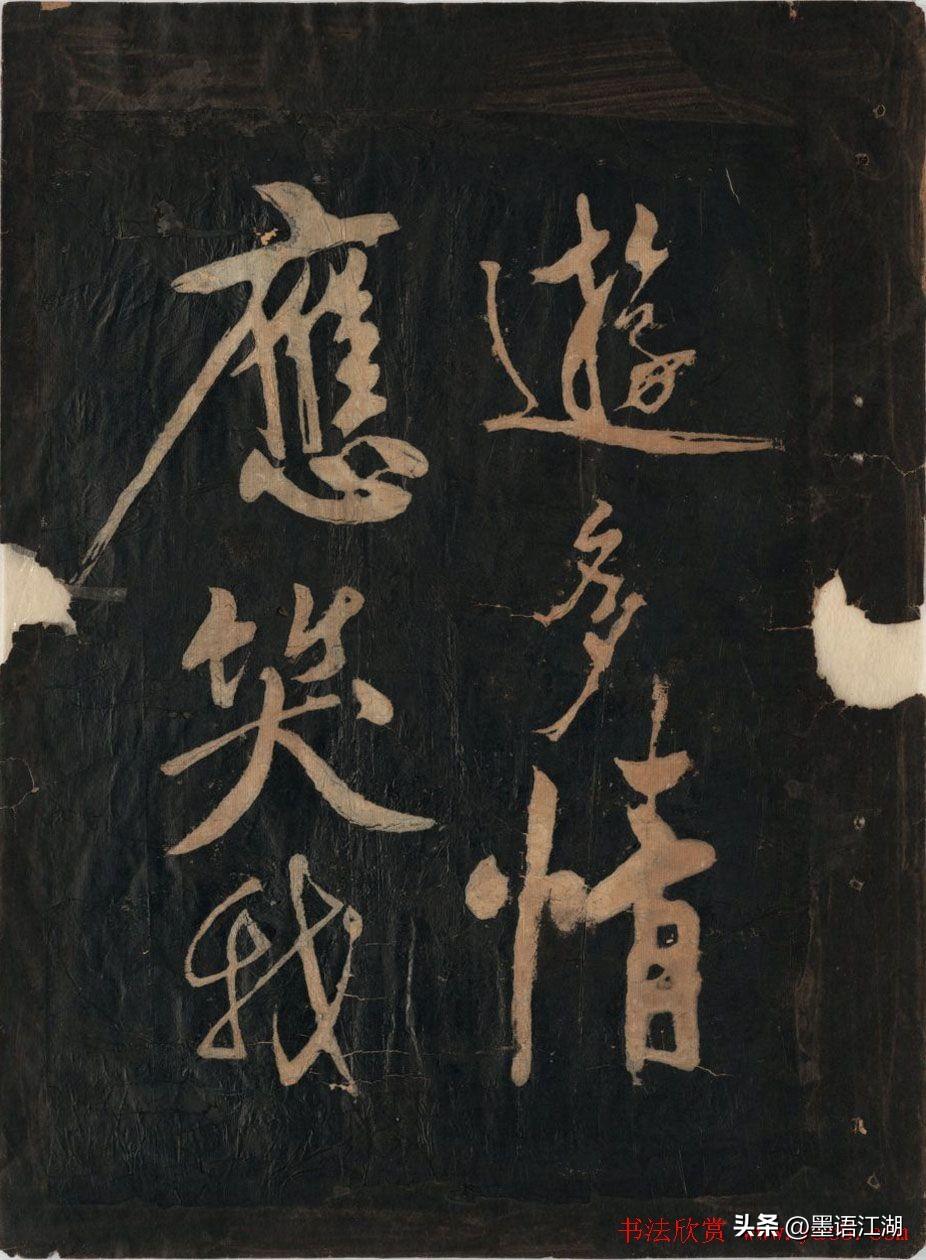 遊多情
應笑我
书法欣赏
头条 @墨语江湖